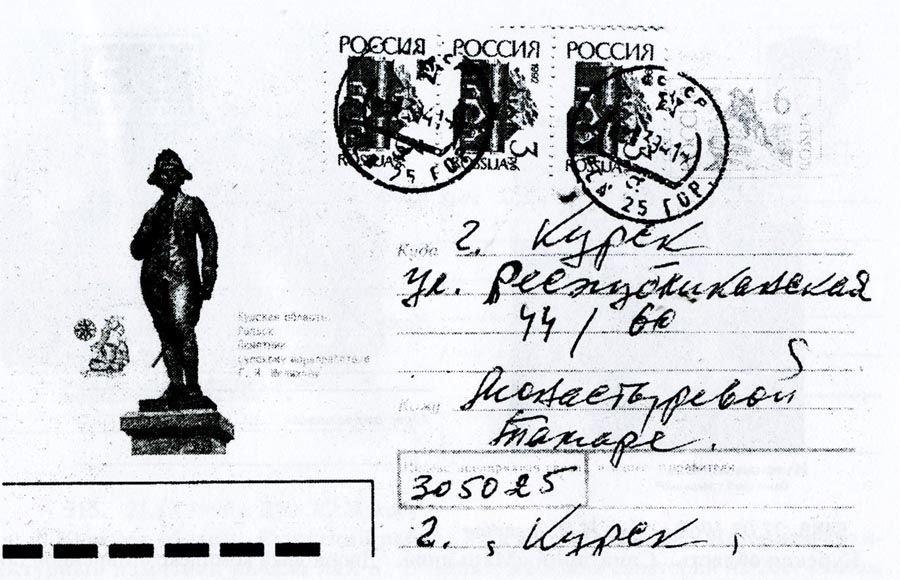 РОССИЯ РОССИЯ РОССИЯ
1992
3
ROSSIJA ROSSIJA ROSSIJA
25 ГОР.
25 ГОР.
6
Куда г. Курск
ул. Республиканская
44 / 60
Курская область.
Рыльск
Памятник
русскому мореплавателю
Г. И. Шелихову
Кому Монастыревой
Тамаре.
305025
г. , Курск ,